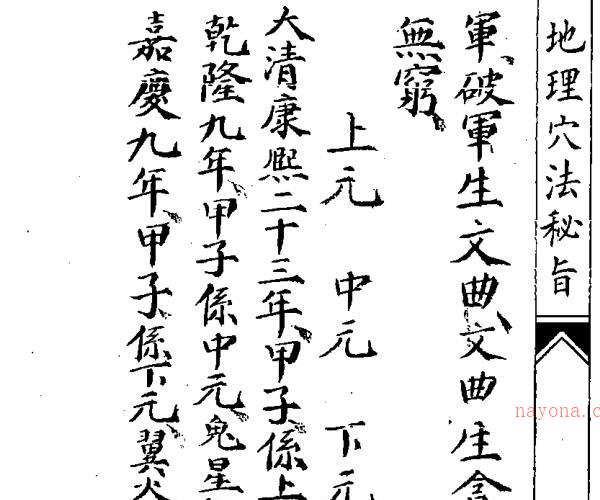 地理穴法秘旨
軍、破軍生文曲、文曲生
無窮、
上元 中元 下元
大清康熙二十三年、甲子係上
乾隆九年、甲子係中元、鬼星
嘉慶九年、甲子係下元、翼火
nayona.c